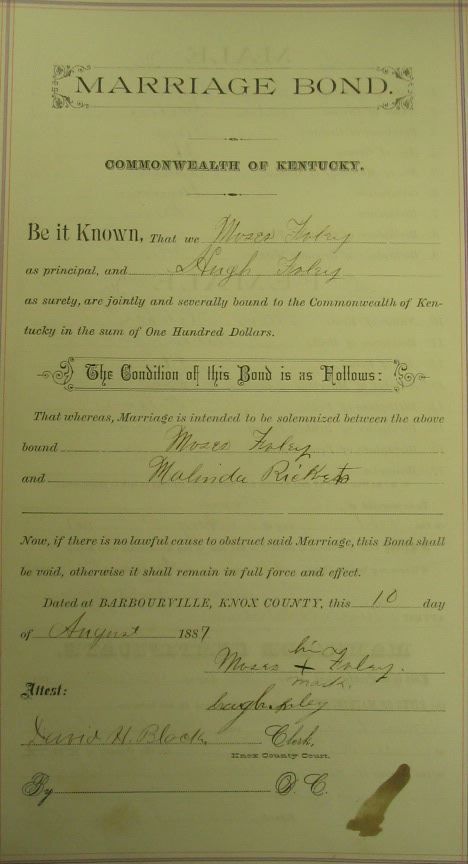 MARRIAGE BOND.
COMMONWEALTH OF KENTUCKY.
Be it Known, That we Moses Foley
as principal, and Hugh Foley
as surety, are jointly and severally bound to the Commonwealth of Ken-
tucky in the sum of One Hundred Dollars.
The Condition of this Bond is as Follows:
That whereas, Marriage is intended to be solemnized between the above
bound Moses Foley
and Malinda Rickets
Now, if there is no lawful cause to obstruct said Marriage, this Bond shall
be void, otherwise it shall remain in full force and effect.
Dated at BARBOURVILLE, KNOX COUNTY, this 10 day
of August 1887
his
Moses + Foley.
mark.
Attest:
foley
David H. Black. Clerk,
Knox County Court.
By D. C.